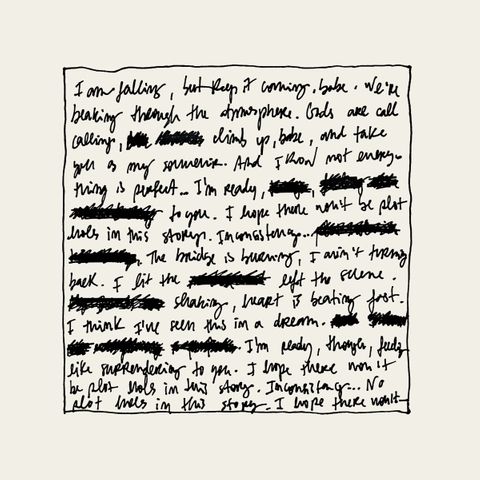 I am falling, but keep it coming, babe. We're
breaking through the atmosphere. Gods are call
calling, climb up, babe, and take
you as my souvenir. And I know not every-
thing is perfect... I'm ready,
to you. I hope there won't be plot
holes in this story. Inconsistency...
The bridge is burning, I ain't turning
back. I lit the left the scene.
shaking, heart is beating fast.
I think I've seen this in a dream.
I'm ready, though, feels
like surrendering to you. I hope there won't
be plot holes in this story. Inconsistency... No
plot holes in this story. I hope there won't